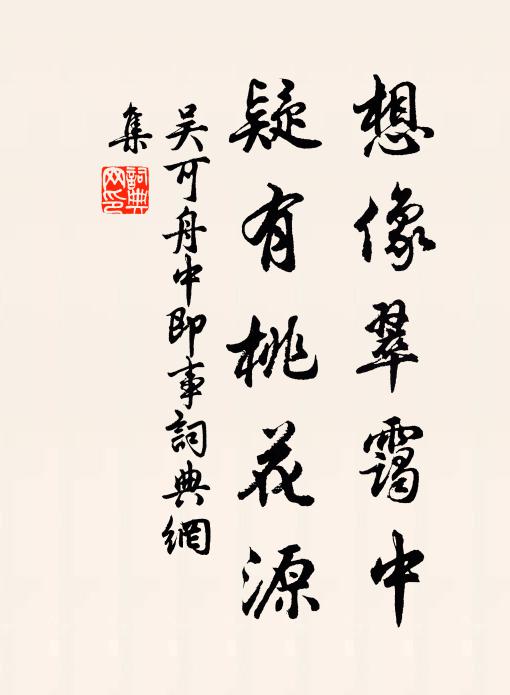 想像翠靄中
疑有桃花源
吴可舟中即事詞典網
集
詞典
网印